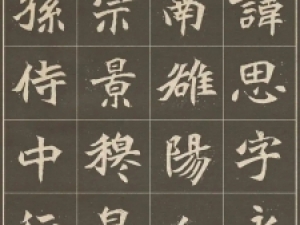 諱思字永
南雒陽
宗景穆
孫侍中